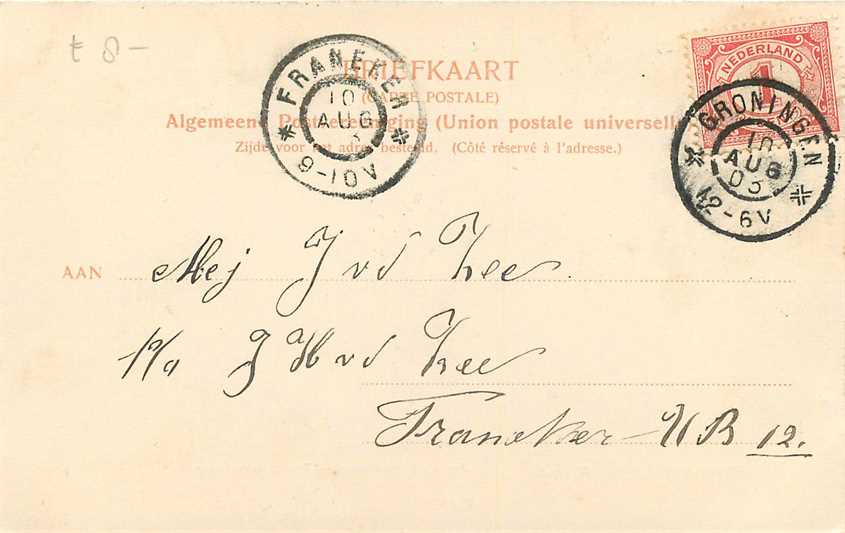 £ 8-
NEDERLAND
1
BRIEFKAART
(CARTE POSTALE)
Algemeene Postvereeniging (Union postale universelle)
Zijde voor het adres bestemd. (Côté réservé à l'adresse.)
FRANEKER
10
AUG
9-10V
GRONINGEN
10
AUG
03
12-6V
AAN Mej J vd Zee
p/a J H vd Zee
Franeker WB 12.